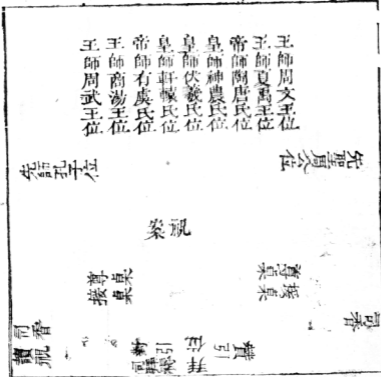 王師周文王位
王師夏禹王位
帝師陶唐氏位
皇師神農氏位
皇師伏羲氏位
皇師軒轅氏位
帝師有虞氏位
王師商湯王位
王師周武王位
先聖周公位
先師孔子位
祝案
尊桌
接桌
尊桌
接桌
司香
司香
讀祝
贊引
拜位